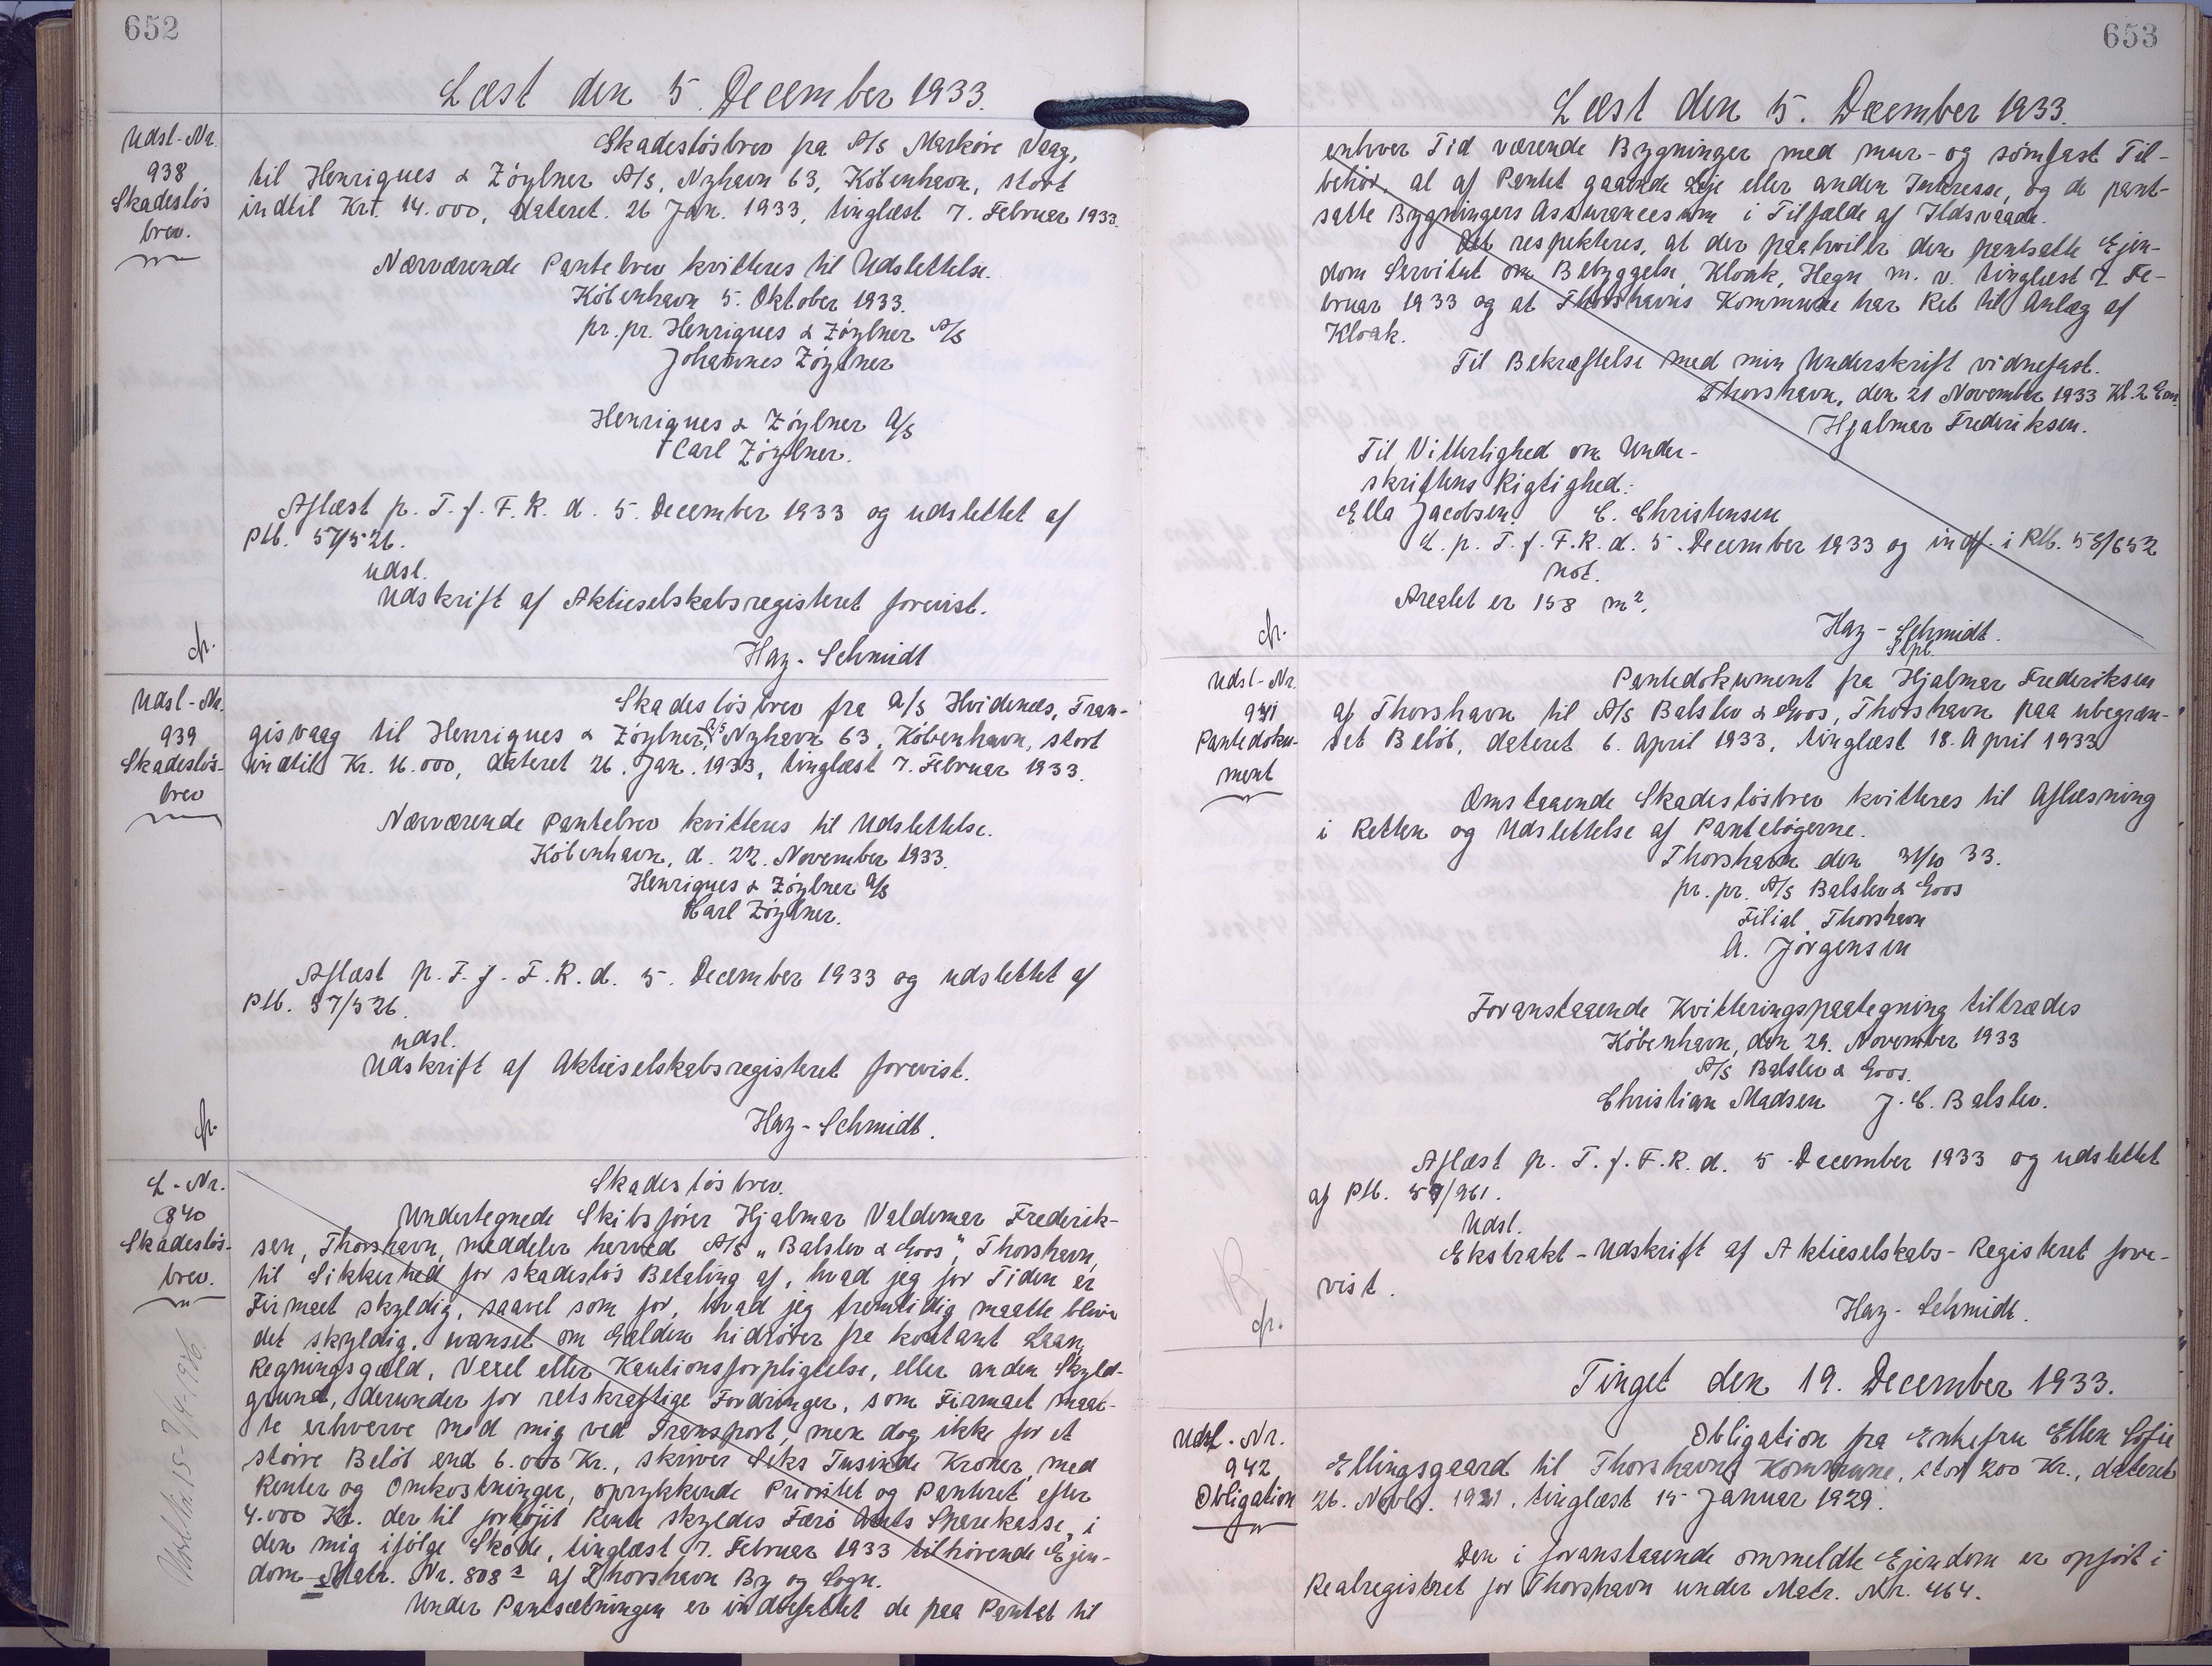 652
Læst den 5. December 1933.
Udsl-Nr.
938
Skadesløs
brev.
Skadesløsbrev fra A/S Markøre Vaag,
til Henriques & Zøylner A/S, Nyhavn 63, København, stort
indtil Krt. 14.000, dateret. 26 Jan. 1933, tinglæst 7. Februar 1933.
Nærværende Pantebrev kvitteres til Udslettelse.
København 5. Oktober 1933.
pr. pr. Henriques & Zøylner A/S
Johannes Zøylner
Henriques & Zøylner A/S
Carl Zøylner.
Aflæst p. T. f. F. R. d. 5. December 1933 og udslettet af
Ptb. 57/526.
udsl.
Udskrift af Aktieselskabsregisteret forevist.
Haz-Schmidt
Udsl-Nr.
939
Skadesløs-
brev
Skadesløsbrev fra A/S Hvidenæs, Tran-
gisvaag til Henriques & Zøylner A/S, Nyhavn 63, København, stort
indtil Kr. 16.000, dateret 26. Jan. 1933, tinglæst 7. Februar 1933.
Nærværende Pantebrev kvitteres til Udslettelse.
København, d. 22. November 1933.
Henriques & Zøylner A/S
Carl Zøylner.
Aflæst p. T. f. F. R. d. 5. December 1933 og udslettet af
Ptb. 57/526.
udsl.
Udskrift af Aktieselskabsregisteret forevist.
Haz-Schmidt.
L-Nr.
940
Skadesløs-
brev.
Skadesløsbrev.
Undertegnede Skibsfører Hjalmar Valdemar Frederik-
sen, Thorshavn, meddeler herved A/S "Balslev & Goos", Thorshavn,
til Sikkerhed for skadesløs Betaling af, hvad jeg for Tiden er
Firmaet skyldig, saavel som for, hvad jeg fremtidig maatte blive
det skyldig, uanset om Gælden hidrører fra kontant Laan,
Regningsgæld, Vexel eller Kautionsforpligtelse, eller anden Skyld-
grund, derunder for retskraftige Fordringer, som Firmaet maat-
te erhverve mod mig ved Transport, men dog ikke for et
større Beløb end 6.000 Kr., skriver Seks Tusinde Kroner, med
Renter og Omkostninger, oprykkende Prioritet og Panteret efter
4.000 Kr. der til forhøjet Rente skyldes Færø Amts Sparekasse, i
den mig ifølge Skøde, tinglæst 7. Februar 1933 tilhørende Ejen-
dom Matr. Nr. 808 a af Thorshavn By og Sogn.
Under Pantsætningen er indbefattet de paa Pantet til
653
Læst den 5. December 1933.
enhver Tid værende Bygninger med mur- og sømfast Til-
behør, al af Pantet gaaende Leje eller anden Interesse, og de pant-
satte Bygningers Assurancesum i Tilfælde af Ildsvaade.
Det respekteres, at der paahviler den pantsatte Ejen-
dom Servitut om Bebyggelse, Kloak, Hegn m. v. tinglæst 7. Fe-
bruar 1933 og at Thorshavns Kommune har Ret til Anlæg af
Kloak.
Til Bekræftelse med min Underskrift vidnefast.
Thorshavn, den 21 November 1933 Kl. 2 Em.
Hjalmar Frederiksen.
Til Vitterlighed om Under-
skriftens Rigtighed:
Ella Jacobsen. C. Christensen
L. p. T. f. F. R. d. 5. December 1933 og indf. i Ptb. 58/652
not.
Arealet er 158 m².
Haz-Schmidt.
Udsl-Nr.
941
Pantedoku-
ment
Pantedokument fra Hjalmar Frederiksen
af Thorshavn til A/S Balslev & Goos, Thorshavn paa ubegræn-
set Beløb, dateret 6. April 1933, tinglæst 18. April 1933
Omstaaende Skadesløsbrev kvitteres til Aflæsning
i Retten og Udslettelse af Pantebøgerne.
Thorshavn den 31/10 33.
pr. pr. A/S Balslev & Goos
Filial Thorshavn
A. Jørgensen
Foranstaaende Kvitteringspaategning tiltrædes
København, den 29. November 1933
A/S Balslev & Goos.
Christian Madsen J. C. Balslev.
Aflæst p. T. f. F. R. d. 5 December 1933 og udslettet
af Ptb.
Udsl.
Ekstrakt-Udskrift af Aktieselskabs-Registeret fore-
vist.
Haz-Schmidt.
Tinget den 19. December 1933.
Udsl-Nr.
942
Obligation
Obligation fra Enkefru Ellen Sofie
Ellingsgaard til Thorshavns Kommune, stor 200 Kr., dateret
26. Novbr. tinglæst 15 Januar 1929.
Den i foranstaaende ommeldte Ejendom er opført i
Realregistret for Thorshavn under Matr. Nr. 464.